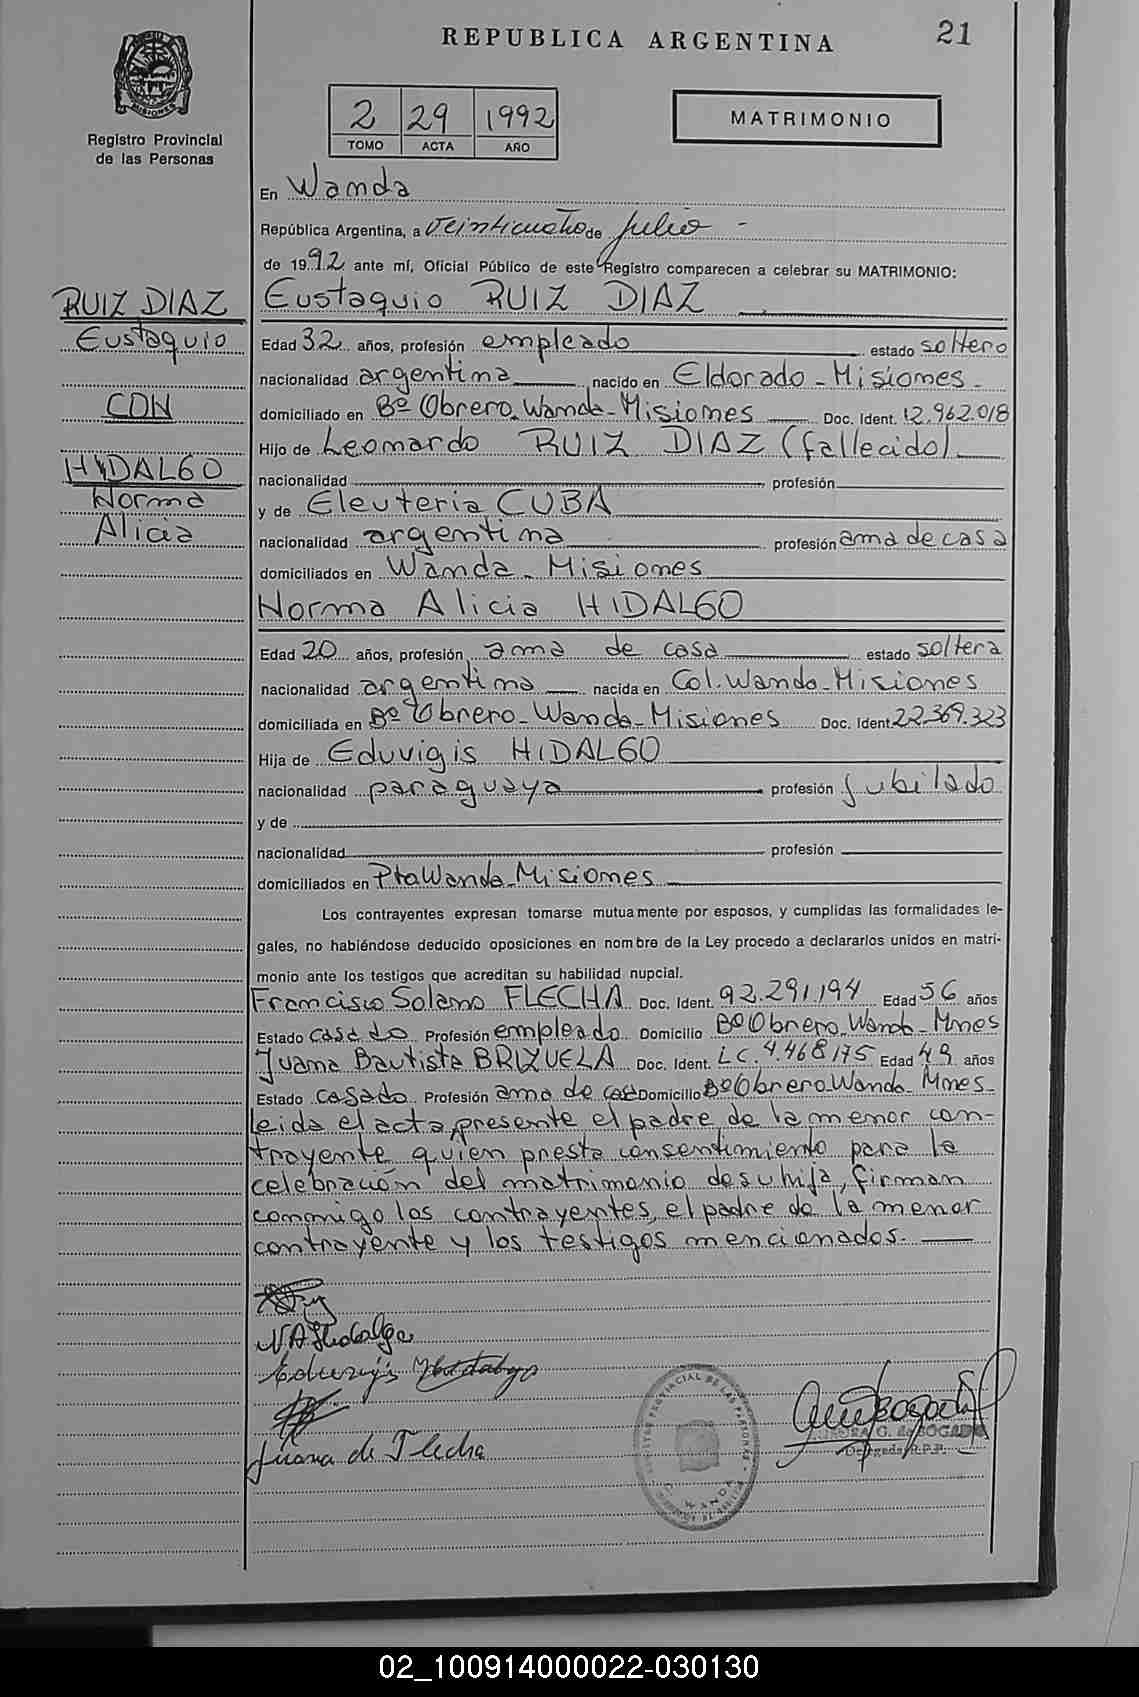 REPUBLICA ARGENTINA
21
MISIONES
Registro Provincial
de las Personas
2 29 1992
TOMO ACTA AÑO
MATRIMONIO
En Wanda
República Argentina, a Veinticuatro de Julio -
de 1992 ante mí, Oficial Público de este Registro comparecen a celebrar su MATRIMONIO:
RUIZ DIAZ
Eustaquio
CON
HIDALGO
Norma
Alicia
Eustaquio RUIZ DIAZ
Edad 32 años, profesión empleado estado soltero
nacionalidad argentina nacido en Eldorado - Misiones -
domiciliado en Bº Obrero Wanda - Misiones Doc. Ident. 12.962.018
Hijo de Leonardo RUIZ DIAZ (fallecido)
nacionalidad profesión
y de Eleuteria CUBA
nacionalidad argentina profesión ama de casa
domiciliados en Wanda - Misiones
Norma Alicia HIDALGO
Edad 20 años, profesión ama de casa estado soltera
nacionalidad argentina nacida en Col. Wanda - Misiones
domiciliada en Bº Obrero - Wanda - Misiones Doc. Ident. 22.369.323
Hija de Eduvigis HIDALGO
nacionalidad paraguaya profesión jubilado
y de
nacionalidad profesión
domiciliados en Pto Wanda - Misiones
Los contrayentes expresan tomarse mutuamente por esposos, y cumplidas las formalidades le-
gales, no habiéndose deducido oposiciones en nombre de la Ley procedo a declararlos unidos en matri-
monio ante los testigos que acreditan su habilidad nupcial.
Francisco Solano FLECHA Doc. Ident. 92.291.194 Edad 56 años
Estado casado Profesión empleado Domicilio Bº Obrero, Wanda - Mnes
Juana Bautista BRIZUELA Doc. Ident. L.C. 4.468.175 Edad 49 años
Estado casado Profesión ama de casa Domicilio Bº Obrero - Wanda - Mnes -
leida el acta, presente el padre de la menor con-
trayente quien presta consentimiento para la
celebración del matrimonio de su hija, firman
conmigo los contrayentes, el padre de la menor
contrayente y los testigos mencionados.
N A Hidalgo
Eduvigis Hidalgo
Juana de Flecha
REGISTRO PROVINCIAL DE LAS PERSONAS
G. de BOGADO
Delegada R.P.P.
02_100914000022-030130